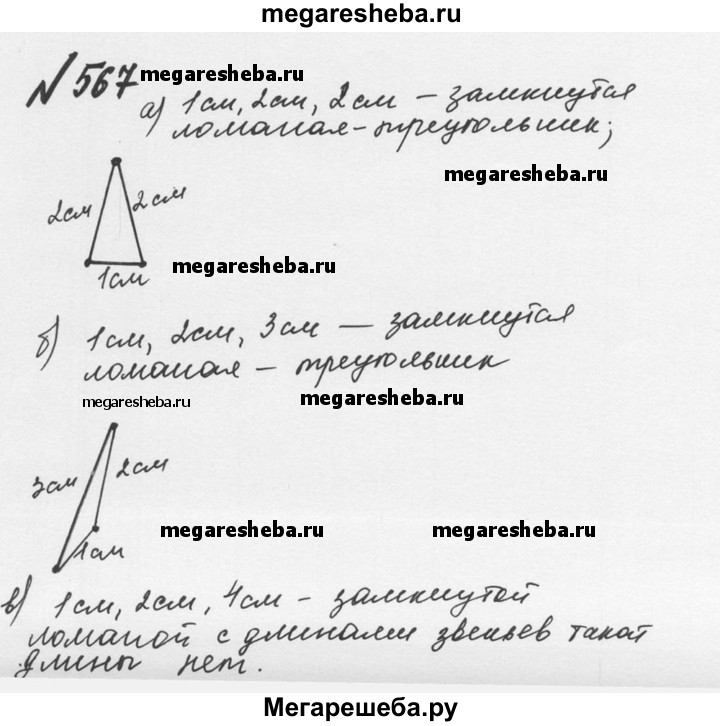 megaresheba.ru
№ 567 megaresheba.ru
а) 1см, 2см, 2см – замкнутая
ломаная – треугольник;
megaresheba.ru
2см 2см
1см megaresheba.ru
б) 1см, 2см, 3см – замкнутая
ломаная – треугольник
megaresheba.ru megaresheba.ru
3см 2см
1см megaresheba.ru megaresheba.ru
в) 1см, 2см, 4см – замкнутой
ломаной с длинами звеньев такой
длины нет.
Мегарешеба.ру